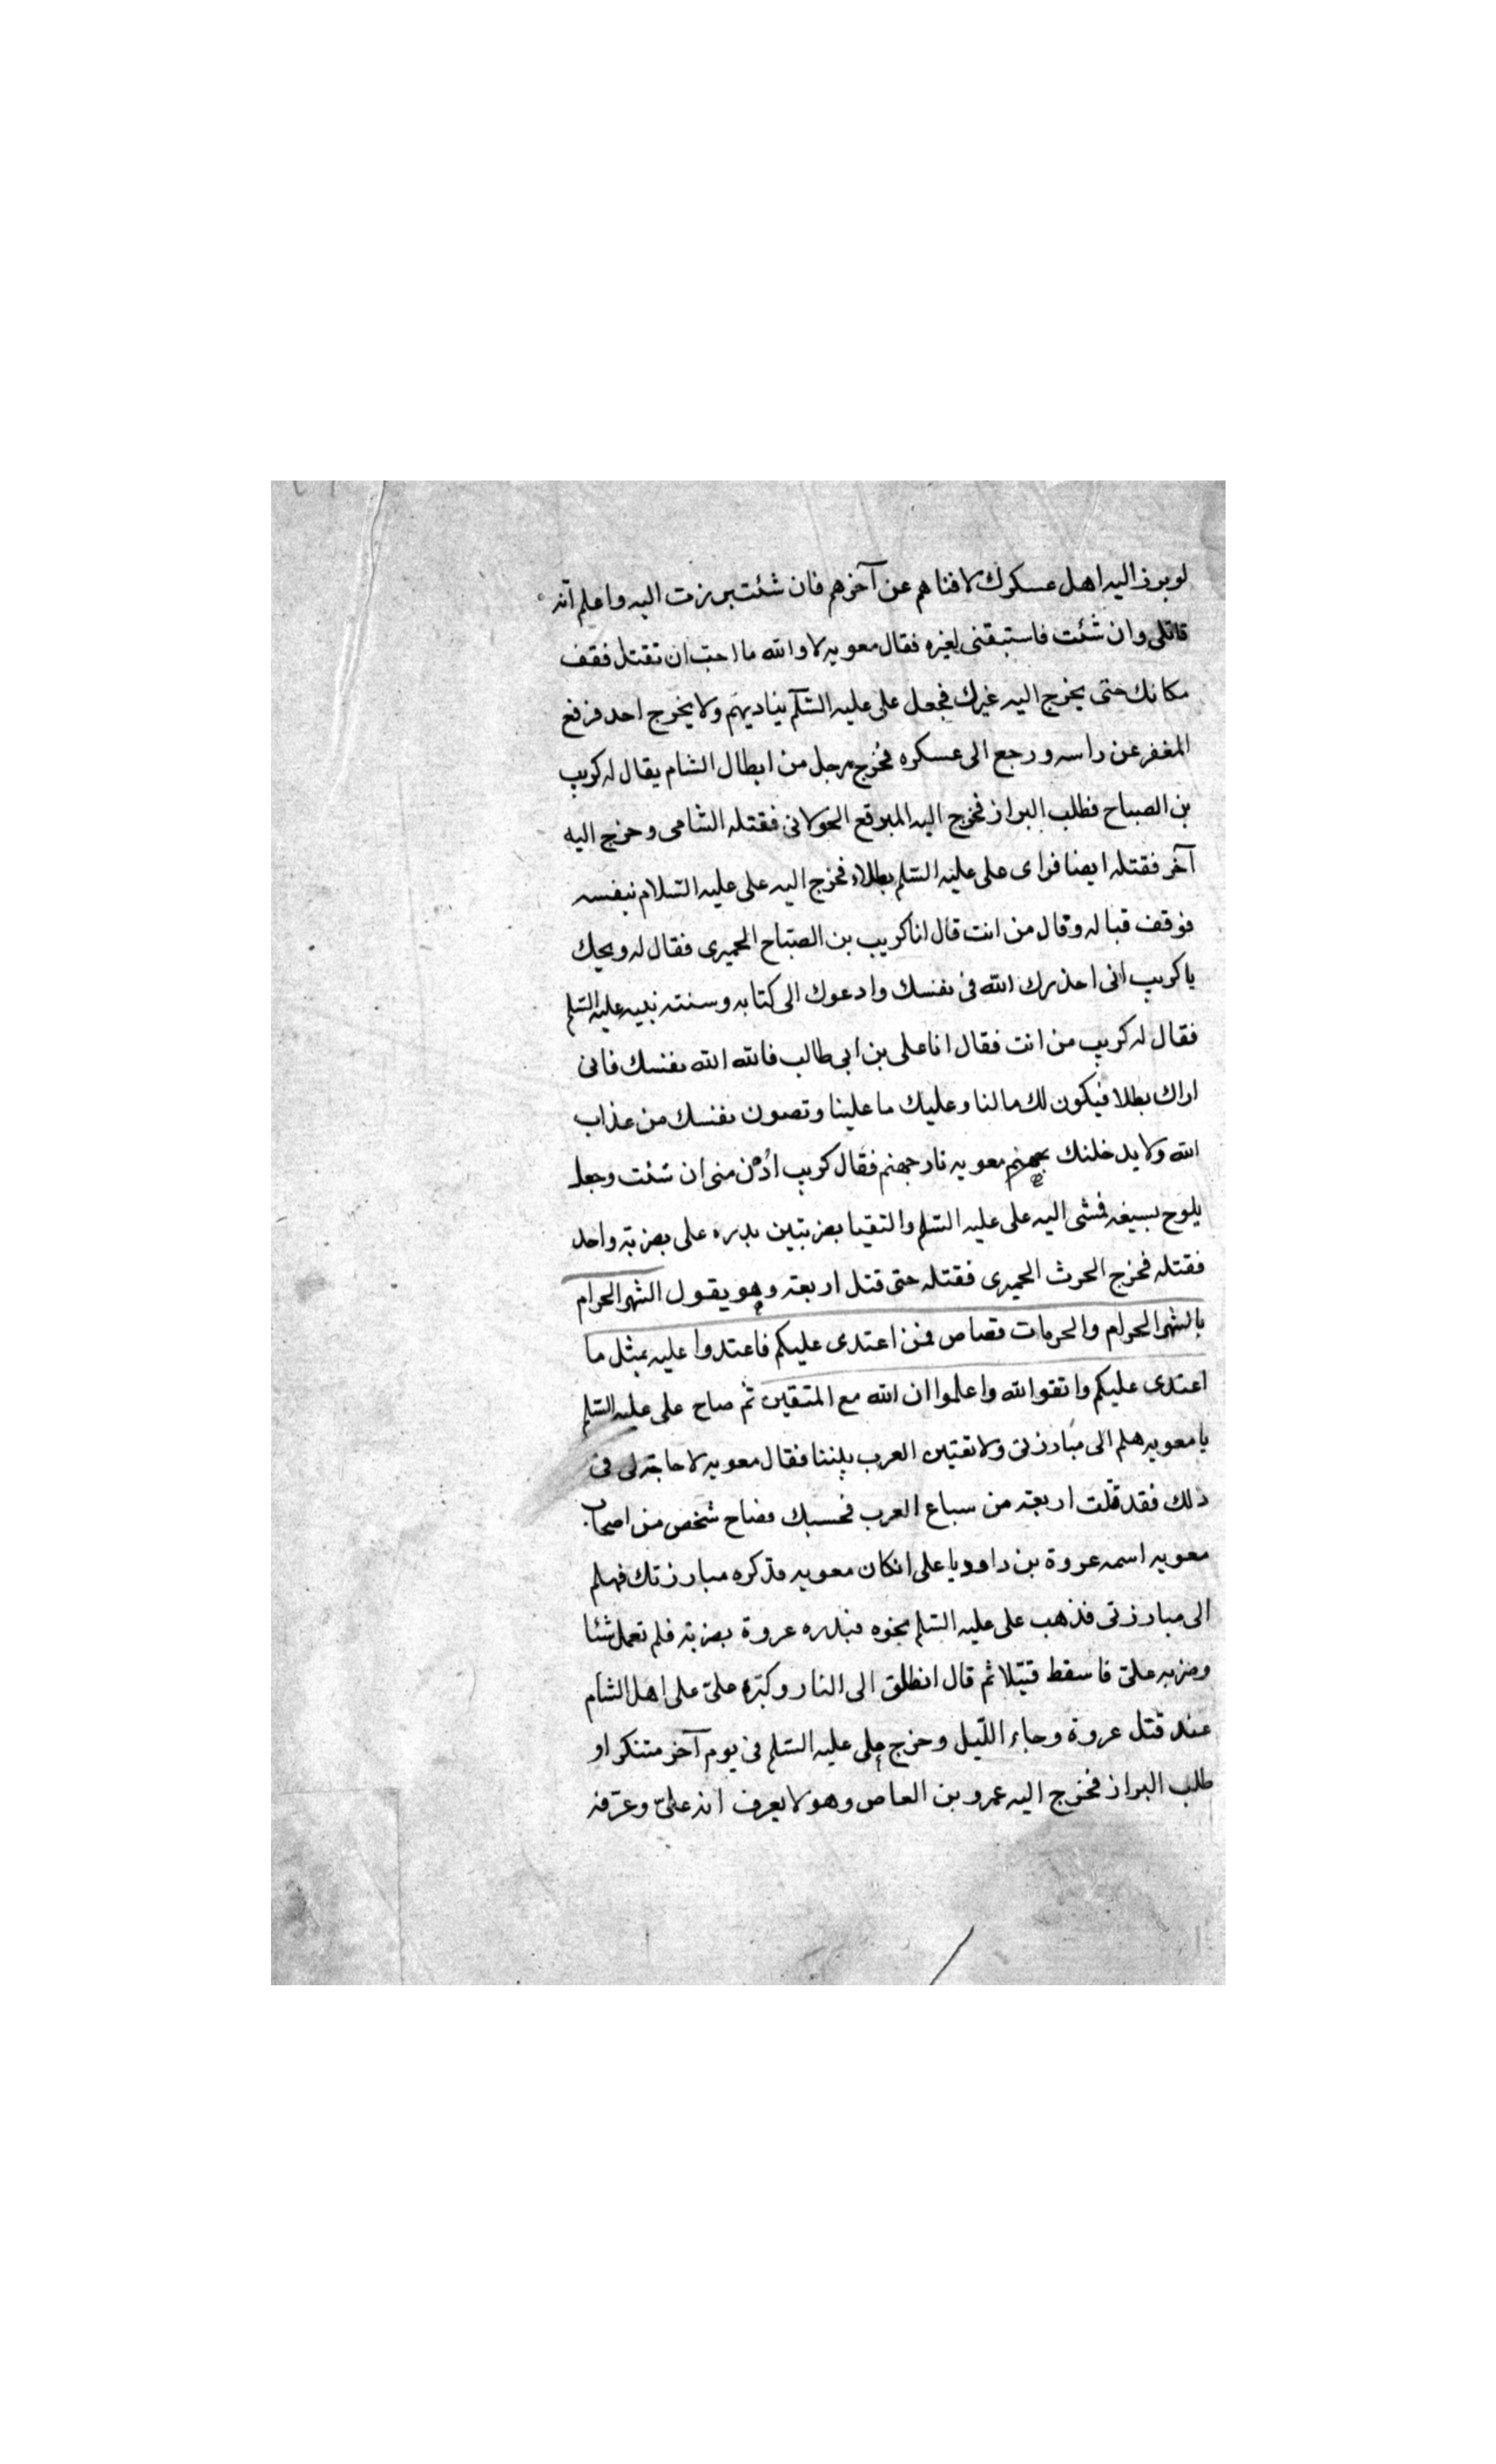 لو برز اليه اهل عسكرك لافناهم عن آخرهم فان شئت برزت اليه واعلم أنه
قاتلى وان شئت فاستبقنى لغيره فقال معويه لا والله ما احبّ ان تقتل فقف
مكانك حتى يخرج اليه غيرك فجعل على عليه السّلم يناديهم ولا يخرج احد فرفع
المغفر عن راسه ورجع الى عسكره فخرج رجل من ابطال الشام يقال له كريب
بن الصباح فطلب البراز فخرج اليه المبرقع الخولانى فقتله الشامى وخرج اليه
آخر فقتله ايضا فراى على عليه السّلم بطلا فخرج اليه على عليه السّلام بنفسه
فوقف قباله وقال من انت قال انا كريب بن الصبّاح الحميرى فقال له ويحك
يا كريب انى احذرك الله فى نفسك وادعوك الى كتابه وسنته نبيه عليه السّلم
فقال له كريب من انت فقال انا على بن ابى طالب فالله الله نفسك فانى
اراك بطلا فيكون لك ما لنا وعليك ما علينا وتصون نفسك من عذاب
الله ولا يدخلنك معويه نار جهنم فقال كريب ادن منى ان شئت وجعل
يلوح بسيفه فمشى اليه على عليه السّلم والتقيا بضربتين بدره على بضربة واحد
فقتله فخرج الحرث الحميرى فقتله حتى قتل اربعة وهو يقول الشهر الحرام
بالشهر الحرام والحرمات قصاص فمن اعتدى عليكم فاعتدوا عليه بمثل ما
اعتدى عليكم واتقوا الله واعلموا ان الله مع المتقين ثم صاح على عليه السّلم
يا معويه هلم الى مبارزتى ولا تفتين العرب بيننا فقال معويه لا حاجة لى فى
ذلك فقد قتلت اربعة من سباع العرب فحسبك فصاح شخص من اصحاب
معويه اسمه عروة بن داود يا على ان كان معويه قد كره مبارزتك فهلم
الى مبارزتى فذهب على عليه السّلم نحوه فبدره عروة بضربة فلم تعمل شئا
وضربه علىّ فاسقط قتيلا ثم قال انطلق الى النار وكبّر علىّ على اهل الشام
عند قتل عروة وجاء اللّيل وخرج على عليه السّلم فى يوم آخر متنكرا و
طلب البراز فخرج اليه عمرو بن العاص وهو لا يعرف انه علىّ وعرّفه